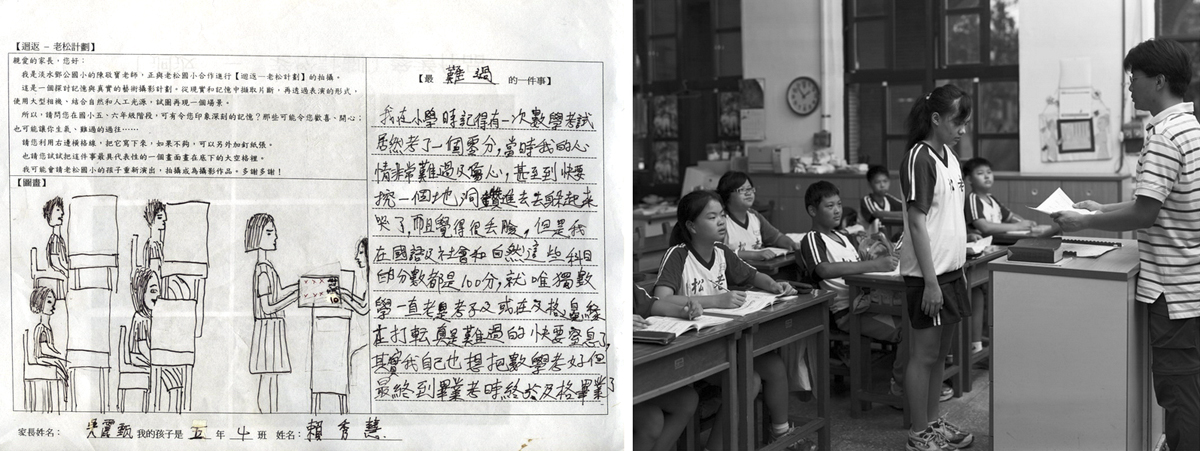 【迴返 – 老松計劃】
親愛的家長，您好：
我是淡水鄧公國小的陳敬寶老師，正與老松國小合作進行【迴返—老松計劃】的拍攝。
這是一個探討記憶與真實的藝術攝影計劃。從現實和記憶中擷取片斷，再透過表演的形式，
使用大型相機，結合自然和人工光源，試圖再現一個場景。
所以，請問您在國小五、六年級階段，可有令您印象深刻的記憶？那些可能令您歡喜、開心；
也可能讓你生氣、難過的過往……
請您利用右邊橫格線，把它寫下來，如果不夠，可以另外加釘紙張。
也請您試試把這件事最具代表性的一個畫面畫在底下的大空格裡。
我可能會請老松國小的孩子重新演出，拍攝成為攝影作品。多謝多謝！
【圖畫】
【最 難過 的一件事】
我在小學時記得有一次數學考試
居然考了一個零分，當時我的心
情非常難過及傷心，甚至到快要
挖一個地洞鑽進去去躲起來
哭了，而且覺得很丟臉，但是我
在國語及社會和自然這些科目
的分數都是100分，就唯獨數
學一直老是考不及或在及格邊緣
在打転真是難過的快要窒息了，
其實我自己也想把數學考好但
最終到畢業考時終於及格畢業了
家長姓名： 我的孩子是 五 年 4 班 姓名：賴秀慧
松老